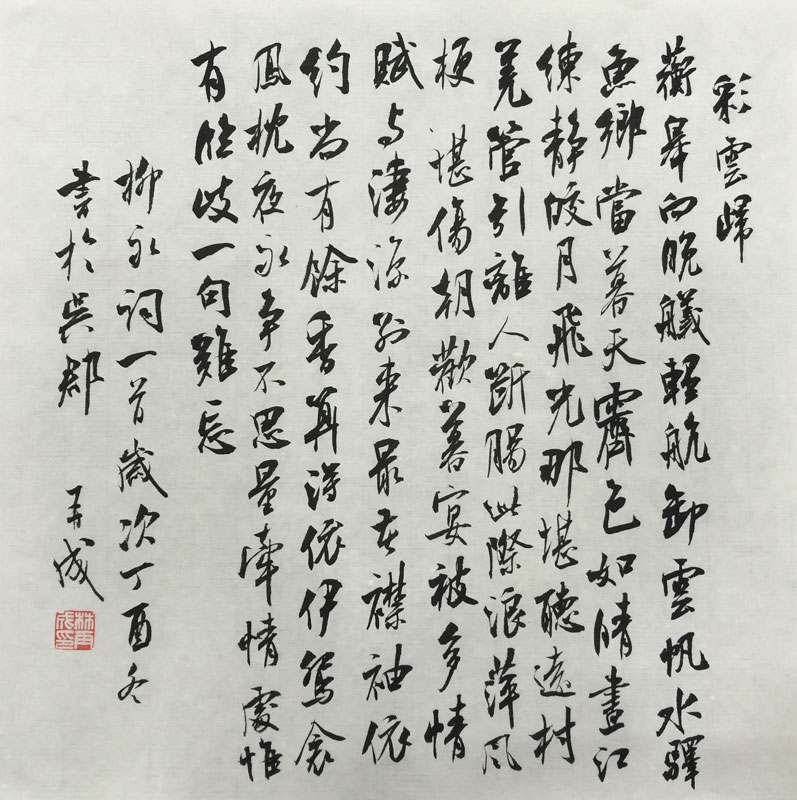 彩雲歸
蘅皋向晚艤輕航卸雲帆水驛
魚鄉當暮天霽色如晴晝江
練靜皎月飛光那堪聽遠村
羌管引離人断腸此際浪萍風
梗 堪傷朝歡暮宴被多情
賦与淒涼別來最在襟袖依
約尚有餘香算得依伊鴛衾
鳳枕夜永爭不思量牽情處惟
有臨歧一句難忘
柳永詞一首歲次丁酉冬
書於吳郡 再成
林再成印